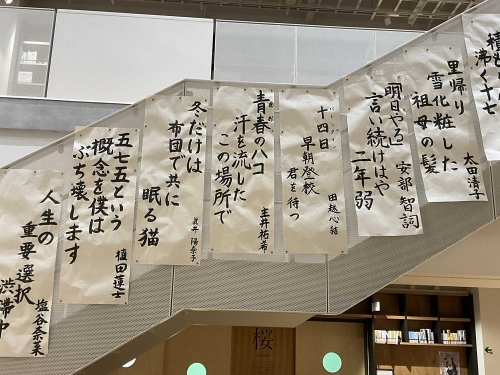 沸く十七
里帰り
雪化粧した
祖母の髪
太田清子
「明日やる」
言い続けはや
二年弱
安部智詞
十四日
早朝登校
君を待つ
青春のハコ
汗を流した
この場所で
冬だけは
布団で共に
眠る猫
五七五という
概念を僕は
ぶち壊します
植田蓮士
人生の
重要選択
渋滞中
塩谷奈菜
桜